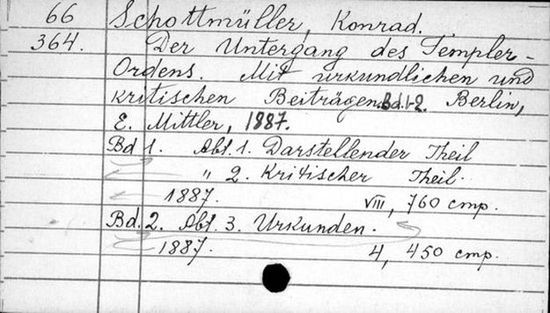 66 Schottmüller, Konrad.
364. Der Untergang des Templer-
Ordens. Mit urkundlichen und
kritischen Beiträgen. Bd. 1-2. Berlin,
E. Mittler, 1887.
Bd 1. Abt. 1. Darstellender Theil
" 2. Kritischer Theil.
1887. VIII, 760 стр.
Bd. 2. Abt. 3. Urkunden.
1887. 4, 450 стр.